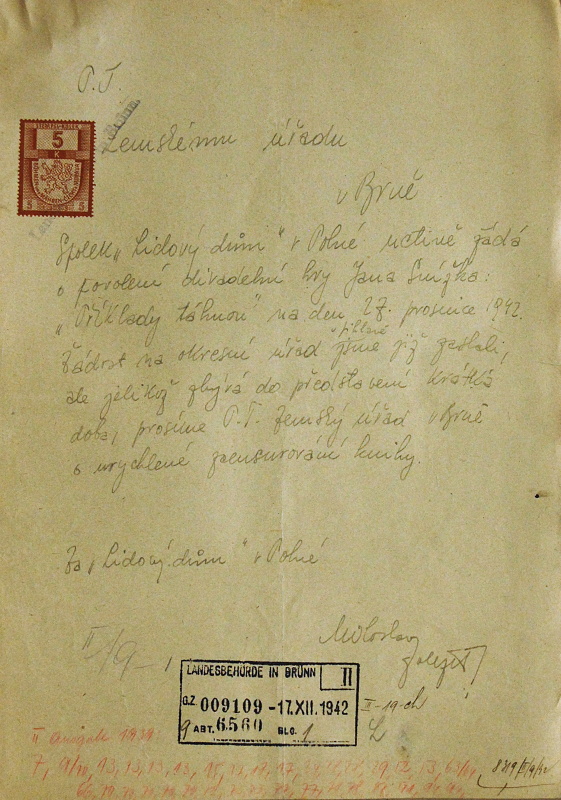 P. T.
STEMPEL-KOLEK
5
K
5 5
Zemskému úřadu
v Brně
Spolek „Lidový dům" v Polné uctivě žádá
o povolení divadelní hry Jana Snížka:
„Příklady táhnou" na den 27. prosince 1942.
Žádost na okresní úřad v Jihlavě jsme již zaslali,
ale jelikož zbývá do představení krátká
doba, prosíme P. T. Zemský úřad v Brně
o urychlené zcensurování knihy.
Za „Lidový dům" v Polné
Miloslav
II/9-1
LANDESBEHÖRDE IN BRÜNN II
G.Z. 009109 -17.XII.1942
9 ABT. 6560 BLG. 1
II-19-ch
II 1939:
7, 9/10, 13, 13, 13, 13,